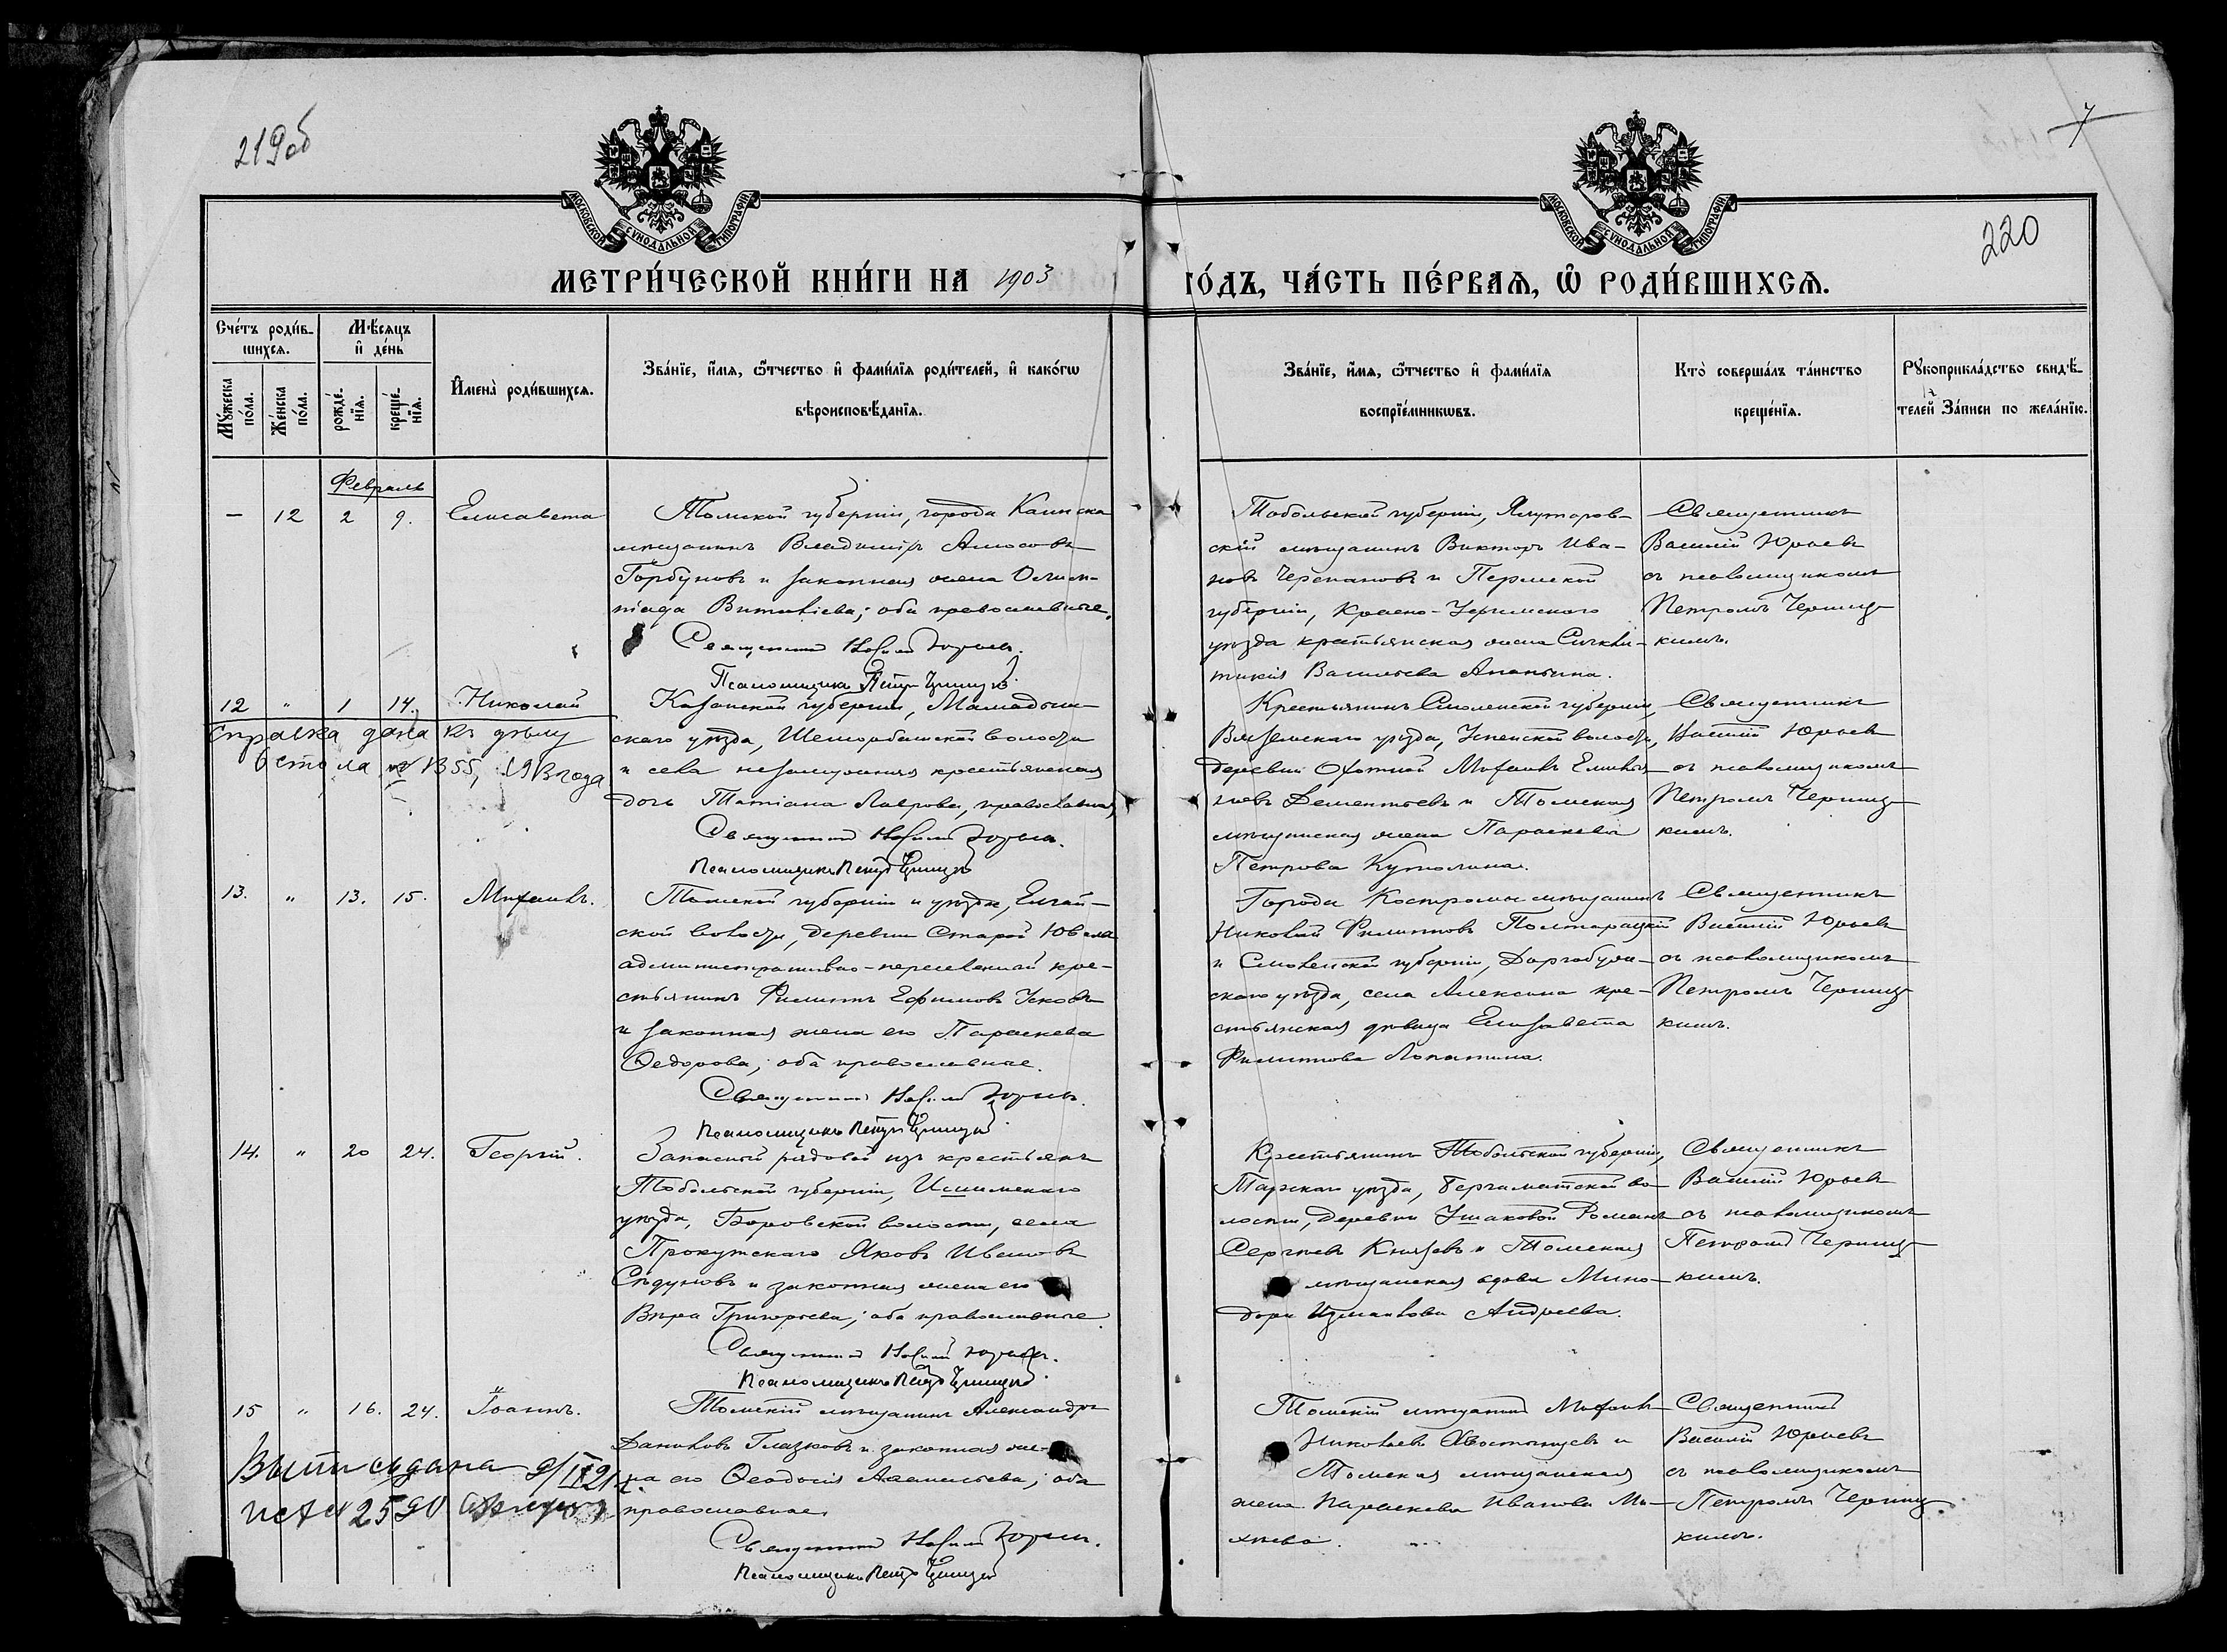 219об
7
220
МОСКОВСКОЙ СѴНОДАЛЬНОЙ ТИПОГРАФІИ
МОСКОВСКОЙ СѴНОДАЛЬНОЙ ТИПОГРАФІИ
МЕТРИ́ЧЕСКОЙ КНИ́ГИ НА 1903
ГО́ДЪ, ЧА́СТЬ ПЕ́РВАѦ, Ѽ РОДИ́ВШИХСѦ.
Сче́тъ роди́в-
шихсѧ.
Мѹжеска по́ла.
Же́нска по́ла.
Мѣ́сѧцъ
и҆ де́нь
рожде́-нїѧ.
креще́-нїѧ.
И҆мена̀ роди́вшихсѧ.
Зва́нїе, и҆́мѧ, ѻ҆́тчество и҆ фами́лїѧ роди́телей, и҆ како́гѡ
вѣроисповѣ́данїѧ.
Зва́нїе, и҆́мѧ, ѻ҆́тчество и҆ фами́лїѧ
воспрїе́мникѡвъ.
Кто̀ соверша́лъ та́инство
креще́нїѧ.
Рѹкоприкла́дство свидѣ́-
телей За́писи по жела́нїю.
Февраль
— 12 2 9. Елисавета
Томской губерніи, города Каинска
мѣщанинъ Владиміръ Амосовъ
Горбуновъ и законная жена Олим-
піада Виталіева; оба православные.
Священникъ Василій Юрьевъ.
Псаломщикъ Петръ
Тобольской губерніи, Ялуторов-
скій мѣщанинъ Викторъ Ива-
новъ Черепановъ и Пермской
губерніи, Красно-Уфимскаго
уѣзда крестьянская жена Синкли-
тикія Васильева Ананьина.
Священникъ
Василій Юрьевъ
съ псаломщикомъ
Петромъ
кимъ.
12 " 1 14. Николай
Справка дана къ дѣлу
стола № 1355, 1913 года
Казанской губерніи, Мамадыш-
скаго уѣзда, волости
и села незамужняя крестьянская
дочь Татіана Лаврова, православная
Священникъ Василій Юрьевъ.
Псаломщикъ Петръ
Крестьянинъ Смоленской губерніи,
Вяземскаго уѣзда, Успенской волости,
деревни Охотной Михаилъ Емелья-
новъ Дементьевъ и Томская
мѣщанская жена Параскева
Петрова Кутолина.
Священникъ
Василій Юрьевъ
съ псаломщикомъ
Петромъ
кимъ.
13. " 13. 15. Михаилъ.
Томской губерніи и уѣзда, Елгай-
ской волости, деревни Старой Ювалы
административно-переселенный кре-
стьянинъ Филиппъ Ефимовъ Усковъ
и законная жена его Параскева
Ѳедорова; оба православные.
Священникъ Василій Юрьевъ.
Псаломщикъ Петръ
Города Костромы мѣщанинъ
Николай Филипповъ Полторацкій
и Смоленской губерніи, Дорогобуж-
скаго уѣзда, села Алексина кре-
стьянская дѣвица Елизавета
Филиппова Лопатина.
Священникъ
Василій Юрьевъ
съ псаломщикомъ
Петромъ
кимъ.
14. " 20 24. Георгій.
Запасный рядовой изъ крестьянъ
Тобольской губерніи, Ишимскаго
уѣзда, Боровской волости, села
Прокутскаго Яковъ Ивановъ
Сѣдуновъ и законная жена его
Вѣра Григорьева; оба православные.
Священникъ Василій Юрьевъ.
Псаломщикъ Петръ
Крестьянинъ Тобольской губерніи,
Тарскаго уѣзда, Бергаматской во-
лости, деревни Ушаковой Романъ
Сергѣевъ Князевъ и Томская
мѣщанская вдова Мино-
дора Измаилова Андреева.
Священникъ
Василій Юрьевъ
съ псаломщикомъ
Петромъ
кимъ.
15 " 16. 24. Іоаннъ.
Выпись дана 9/IX 21 г.
№ 2590
Томскій мѣщанинъ Александръ
Даниловъ Глазковъ и законная же-
на его Ѳеодосія Савельева; оба
православные.
Священникъ Василій Юрьевъ.
Псаломщикъ Петръ
Томскій мѣщанинъ Михаилъ
Николаевъ Хвостунцевъ и
Томская мѣщанская
жена Параскева Иванова Ми-
хѣева.
Священникъ
Василій Юрьевъ
съ псаломщикомъ
Петромъ
кимъ.